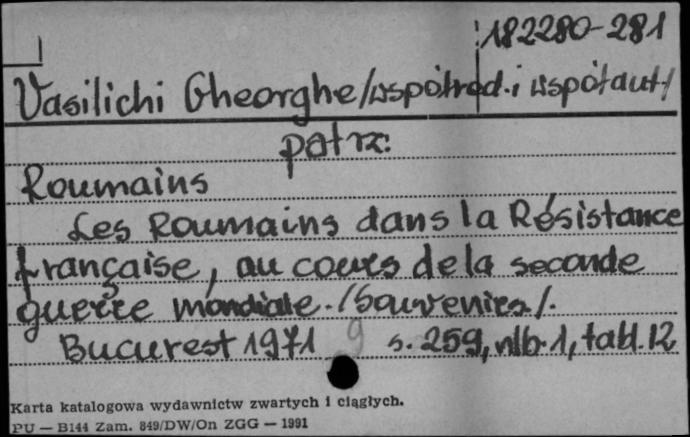 182280-281
Vasilichi Gheorghe/współred.i współaut/
patrz:
Roumains
Les Roumains dans la Résistance
française, au cours de la seconde
guerre mondiale. /Souvenirs/.
Bucurest 1971 9 s. 259, nlb. 1, tabl. 12
Karta katalogowa wydawnictw zwartych i ciągłych.
PU — B144 Zam. 849/DW/On ZGG — 1991